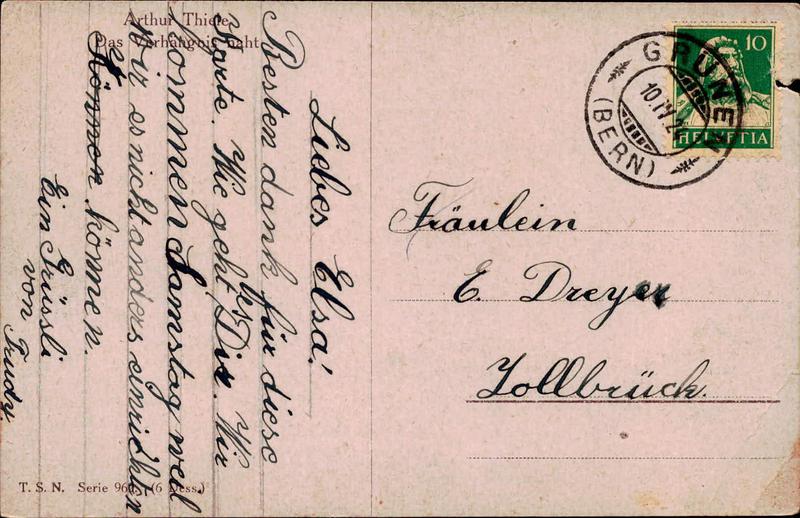 Arthur Thiele
Das Verhängnis naht
Liebes Elsa!
Besten dank für diese
Karte. Wie geht es Dir. Wir
kommen Samstag weil
wir es nicht anders einrichten
können können.
Ein Grüssli
von Trudy
T. S. N. Serie (6 Dess.)
GRÜNEN
(BERN)
10
HELVETIA
Fräulein
E. Dreyer
Zollbrück.